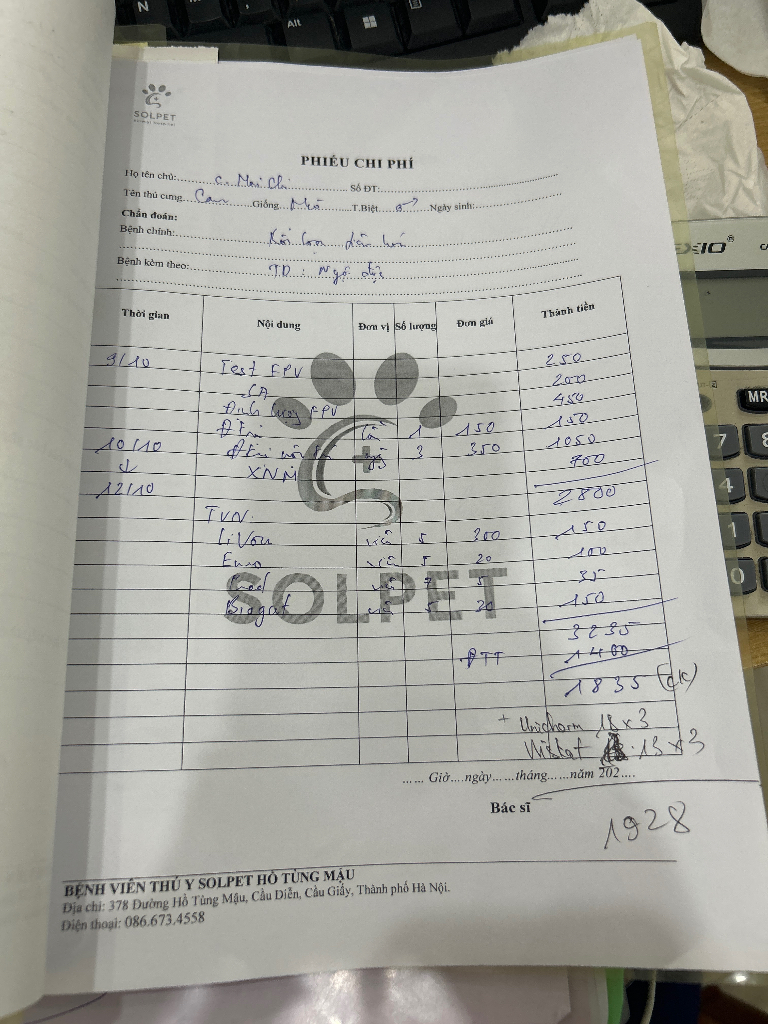 N
Alt
SOLPET
PHIẾU CHI PHÍ
Họ tên chủ: C. Mai Chi Số ĐT:
Tên thú cưng Cam Giống Mèo T.Biệt ♂ Ngày sinh:
Chẩn đoán:
Bệnh chính: Rối loạn tiêu hoá
Bệnh kèm theo: TD: Ngộ độc
Thời gian Nội dung Đơn vị Số lượng Đơn giá Thành tiền
9/10 Test FPV 250
200
Định lượng FPV 450
Đ trị lần 1 150 150
10/10 Đ trị nội trú ngày 3 350 1050
↓ XNM 700
12/10 2800
TVN:
LiVou viên 5 300 150
viên 5 20 100
Pred viên 7 5 35
viên 5 20 150
SOLPET
3235
ĐTT 1400
1835 (ck)
+ Unicharm 18 x 3
13 x 3
...... Giờ....ngày......tháng......năm 202....
Bác sĩ
1928
BỆNH VIÊN THÚ Y SOLPET HỒ TÙNG MẬU
Địa chỉ: 378 Đường Hồ Tùng Mậu, Cầu Diễn, Cầu Giấy, Thành phố Hà Nội.
Điện thoại: 086.673.4558
MR
7 8
4
1
0